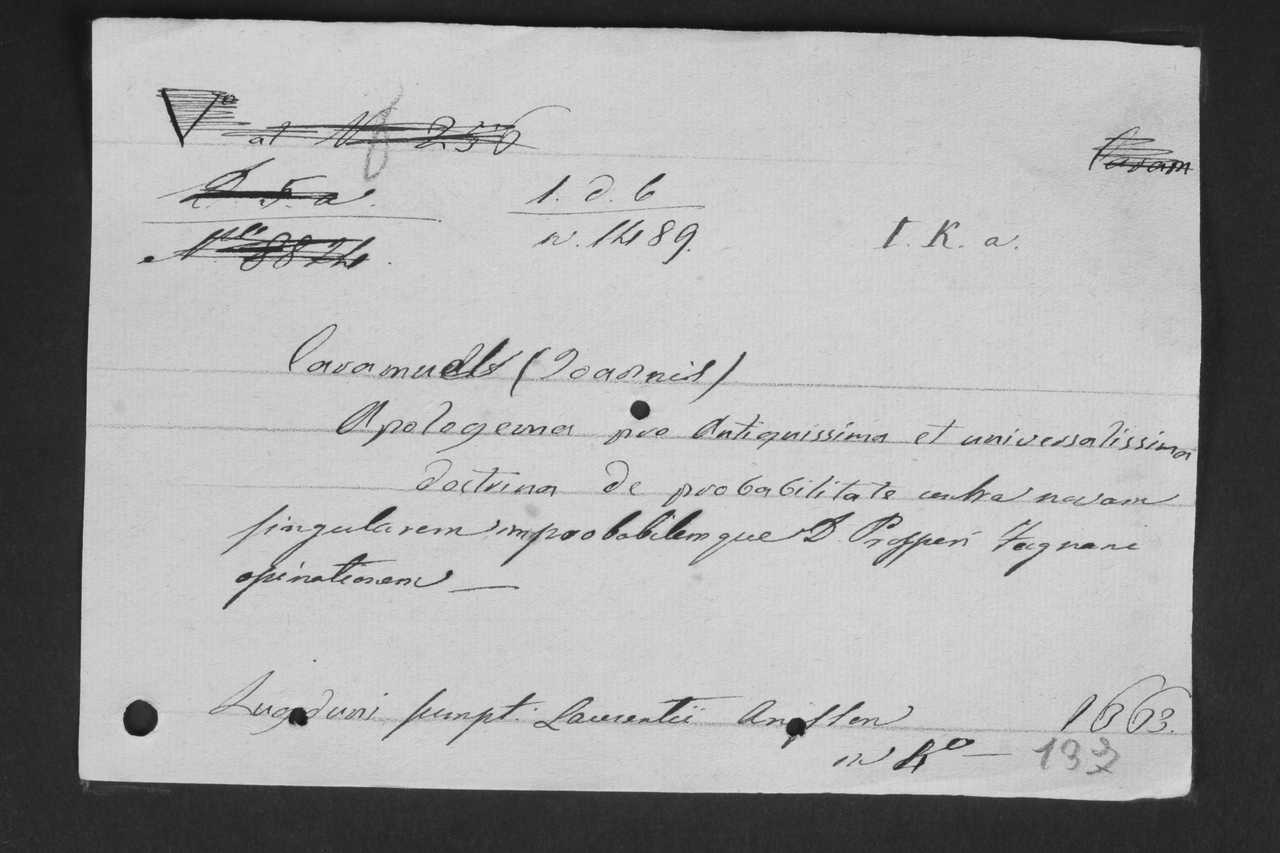 at N 256
Caram
2. 5. a.
1. d. b
8824
n. 1489.
I. K. a.
Caramuelis (Joannis)
Apologema pro Antiquissima et universalissima
doctrina de probabilitate contra novam
singularem improbabilemque D. Prosperi Fagnani
opinationem —
Lugduni sumpt. Laurentii Anisson 1663.
in 4º — 197